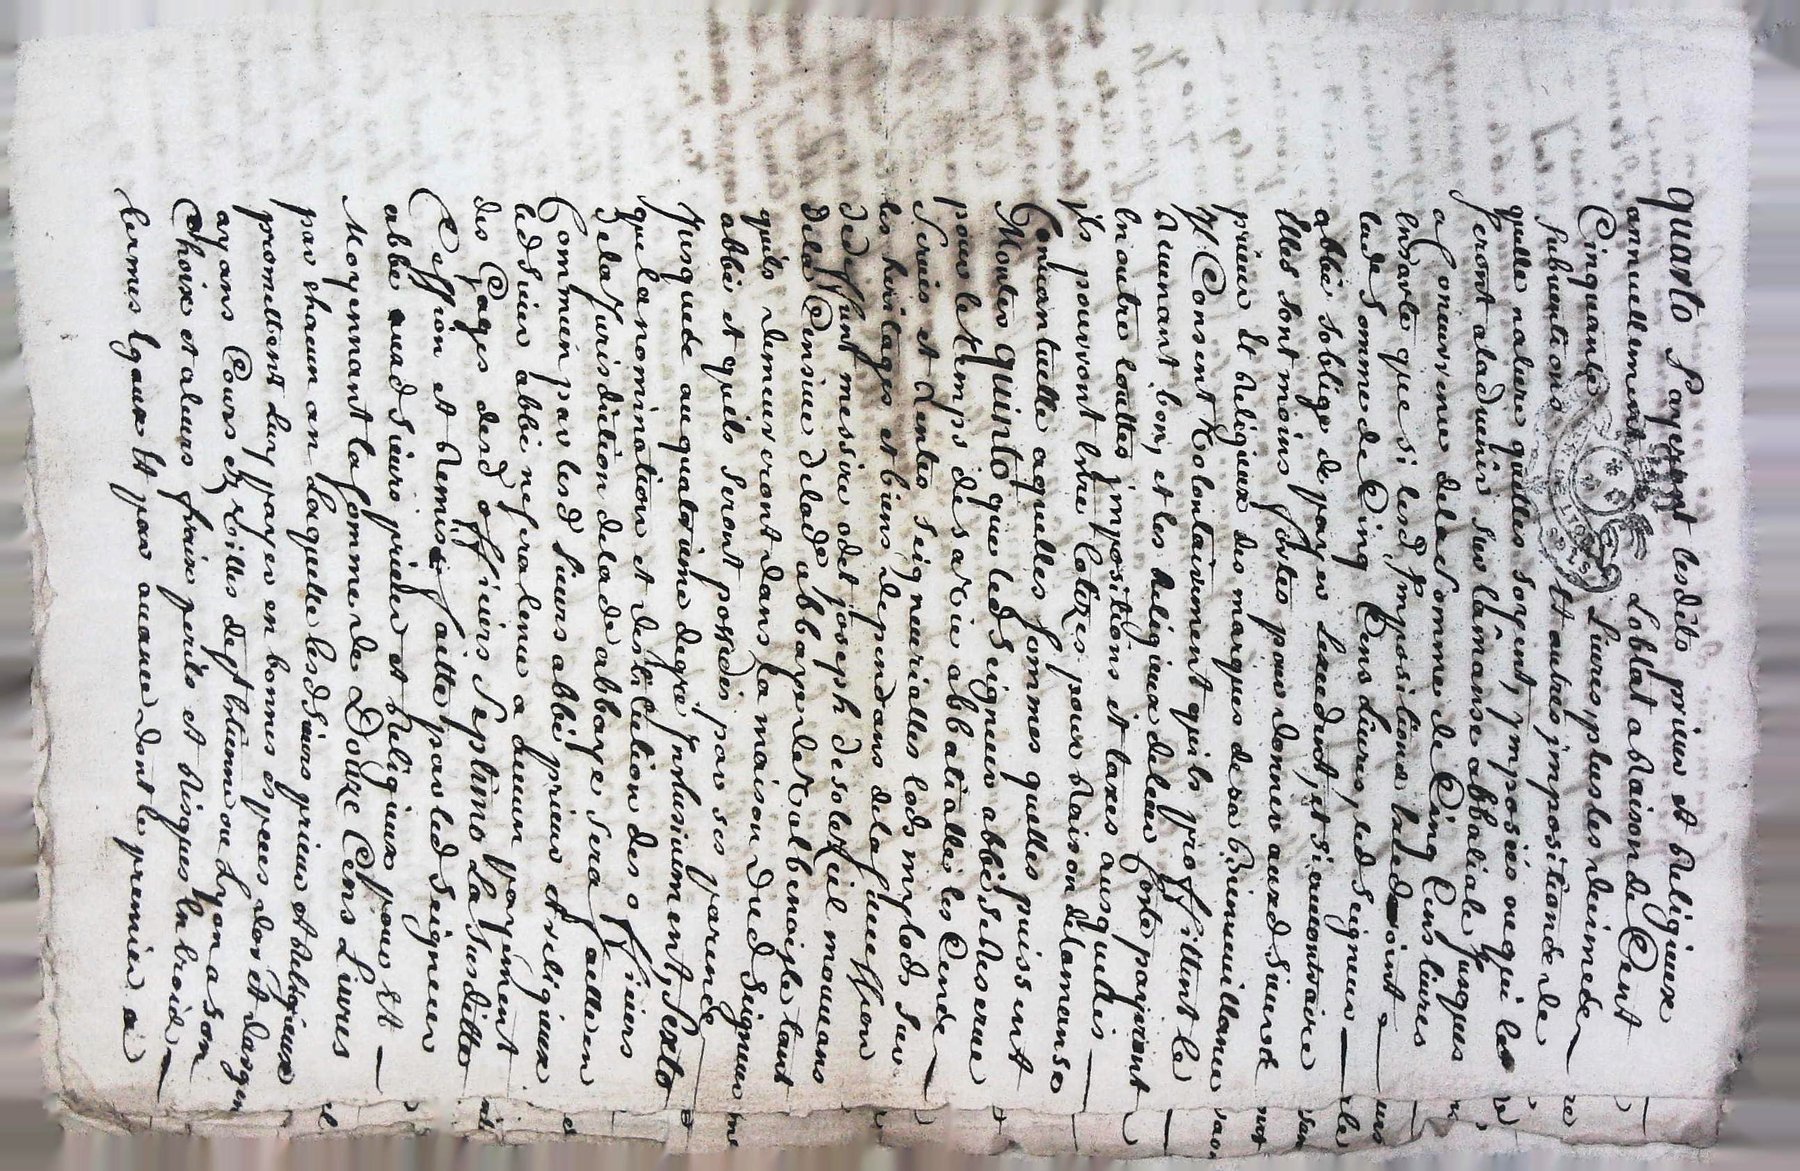 quarto Payeront lesdits prieur et Religieux
annuellement Loblat a Raison de Cent
Cinquante Livres plus les decimes
subventions Et autres impositions de
quelle nature quelles soyent, imposées ou qui le
seront a ladvenir sur la manse abbatiale jusques
a Concurrence de la somme de Cinq Cens livres
Ensorte que si lesd impositions
lad somme de Cinq Cens Livres, led Seigneur
abbé soblige de payer Lexcedent, et si au contraire
Elles sont moins fortes pour donner auxd Sieurs
prieur Et Religieux des marques de sa Bienveuillance
Il Consent Volontairement quils proffittent le
Revenant bon, et les Religieux de leur Coste payeront
En outre touttes impositions et taxes ausquelles
ils pourront Estre Cotizes pour Raison de la mense
Conventuelle a quelles sommes quelles puissent
Monter quinto que led Seigneur abbé se Reserve
pour le temps de sa vie abbatialle les Cens
Servis et Rentes seigneurialles lods mylods sur
les heritages et biens dependans de la succession
de deffunt messire odet joseph de solezel mouvans
de la Censive de lad abbaye de Valbenoiste tant
quils demeureront dans la maison dud Seigneur
abbé et quils seront possedés par ses parends
jusques au quatrieme degré Inclusivement, Sexto
que la nomination et destitution des officiers
de la jurisdiction de lade abbaye sera faitte en
Commun par lesd Sieurs abbé prieur et religieux
led Sieur abbé ne sera tenu a aucun payement
des Gages desd officiers Septimo La susditte
Cession et Remise faitte par led Seigneur
abbé auxd Sieurs prieur et Religieux pour Et
Moyennant la somme de Douze Cens Livres
par chacun an Laquelle lesd Sieurs prieur et Religieux
promettent Luy payer en bonnes especes dor et dargent
ayans Cours Ez Villes de st Etienne ou Lyon a son
Choix et a leurs fraix perils et Risques En trois
termes Egaux Et par avance dont le premier a